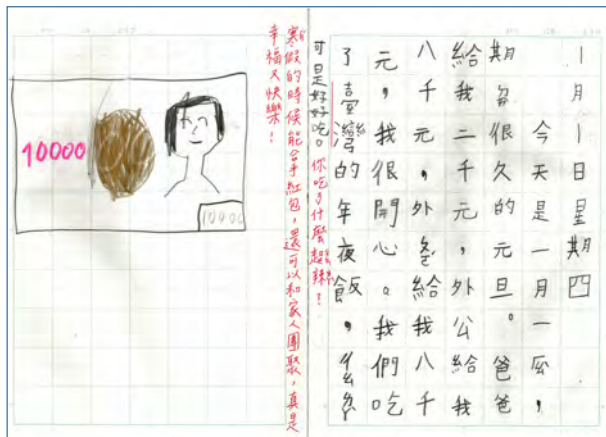 一月一日星期四
今天是一月一，
期很久的元旦。爸爸
給我二千元，外公給我
八千元，外給我八千
元，我很開心。我們吃
了臺灣的年夜飯，
可是好好吃。你吃了什麼超辣？
寒假的時候能拿紅包，還可以和家人團聚，真是
幸福又快樂！
10000
10000